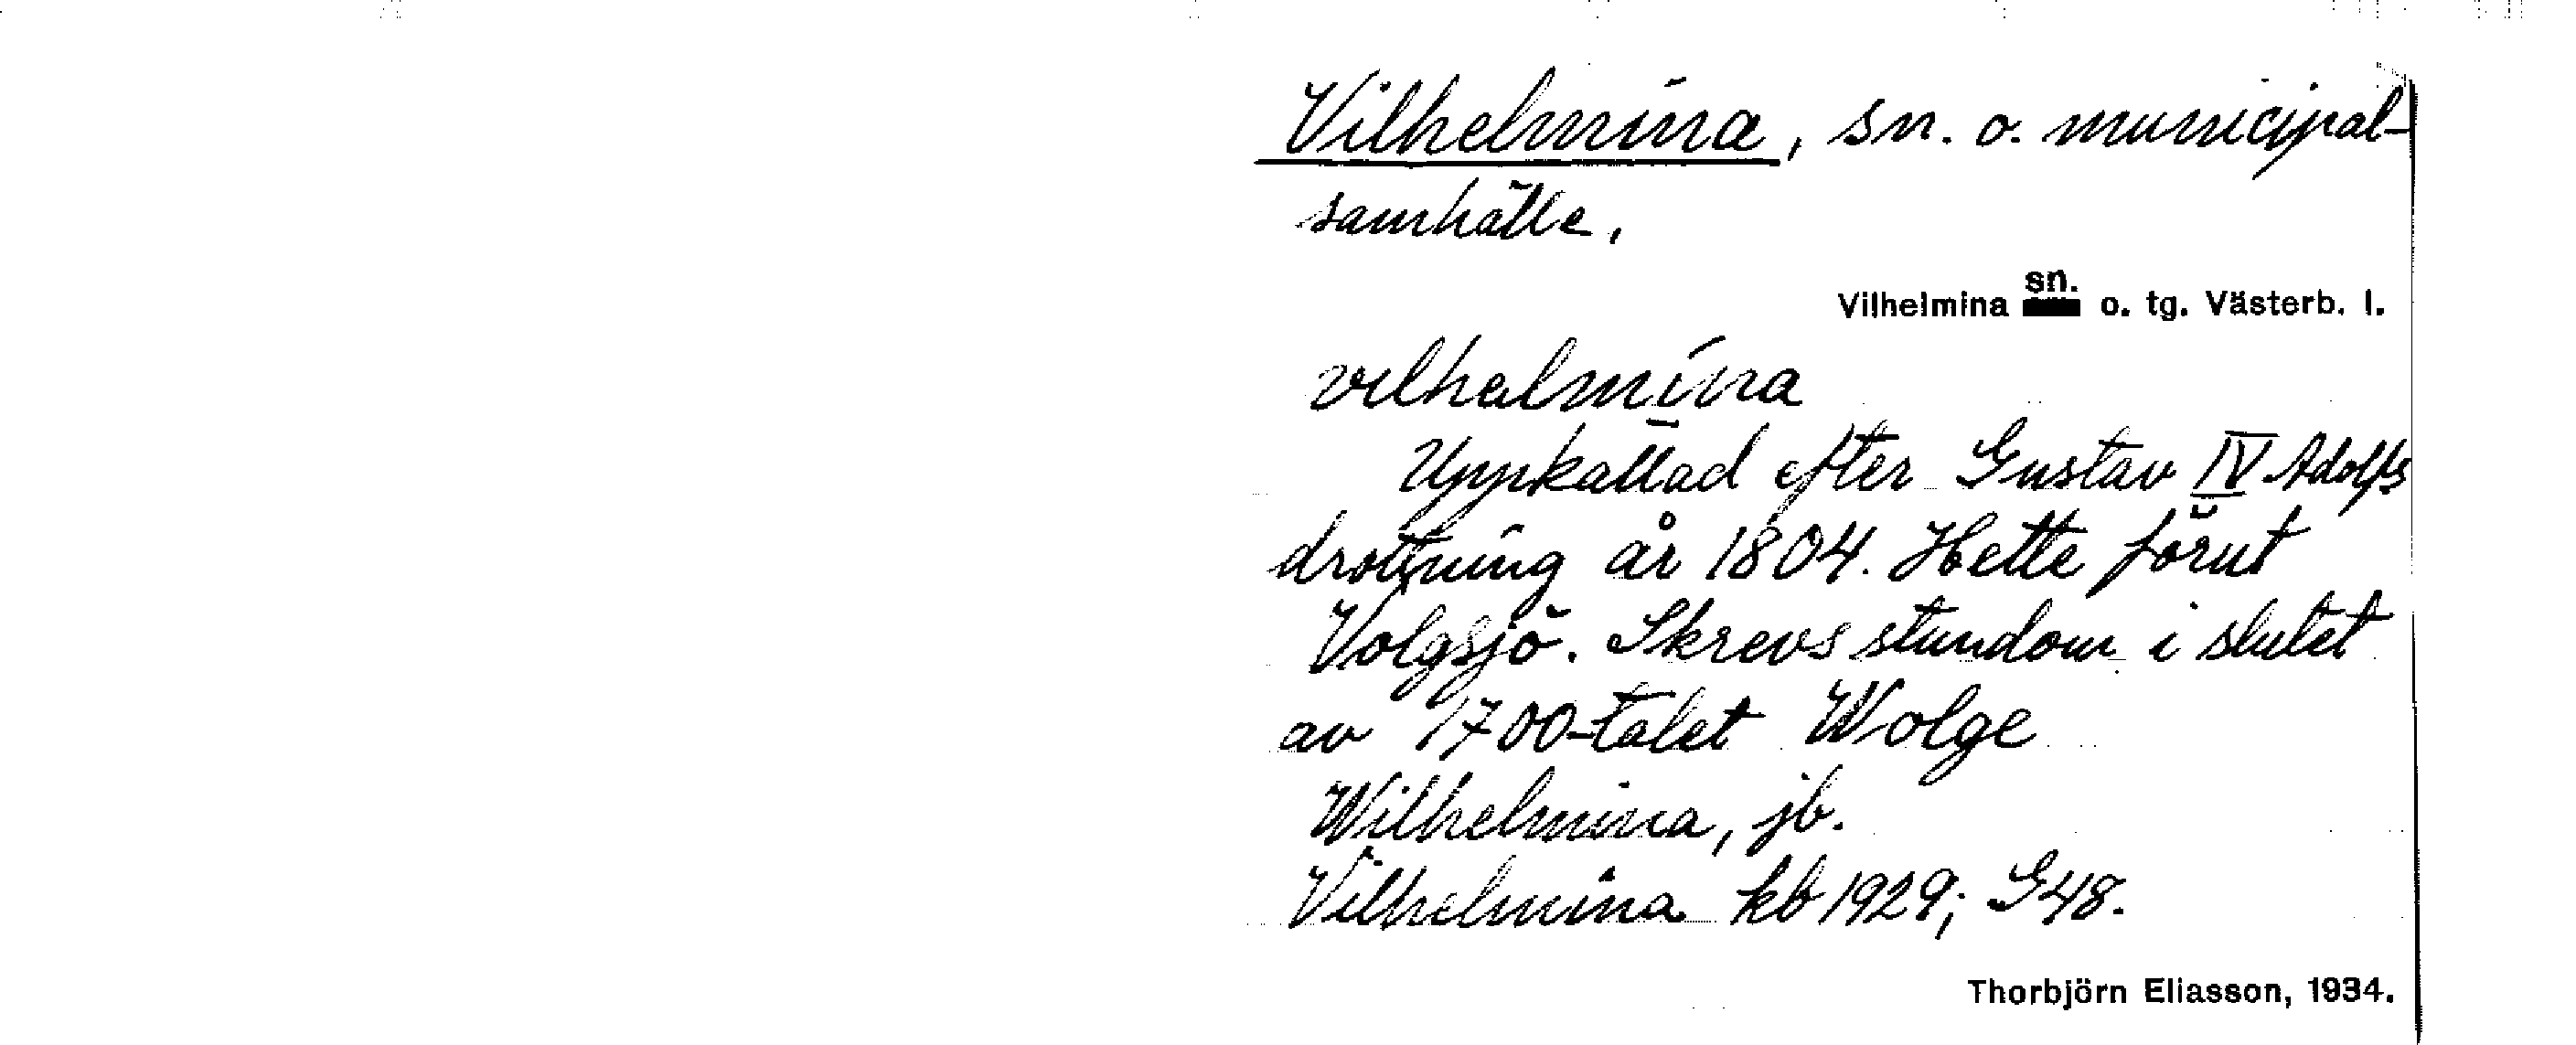 Vilhelmina, sn. o. municipal-
samhälle,
Vilhelmina sn. o. tg. Västerb. l.
vilhelmína
Uppkallad efter Gustav IV Adolfs
drottning år 1804. Hette förut
Volgsjö. Skrevs stundom i slutet
av 1700-talet Wolge
Wilhelmina, jb.
Vilhelmina kb 1929; G48.
Thorbjörn Eliasson, 1934.